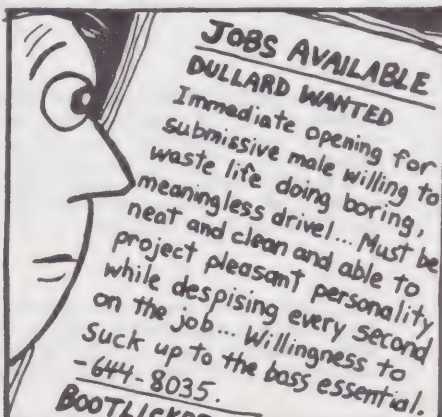 JOBS AVAILABLE
DULLARD WANTED
Immediate opening for
submissive male willing to
waste life doing boring,
meaningless drivel... Must be
neat and clean and able to
project pleasant personality
while despising every second
on the job... Willingness to
Suck up to the boss essential.
-644-8035.